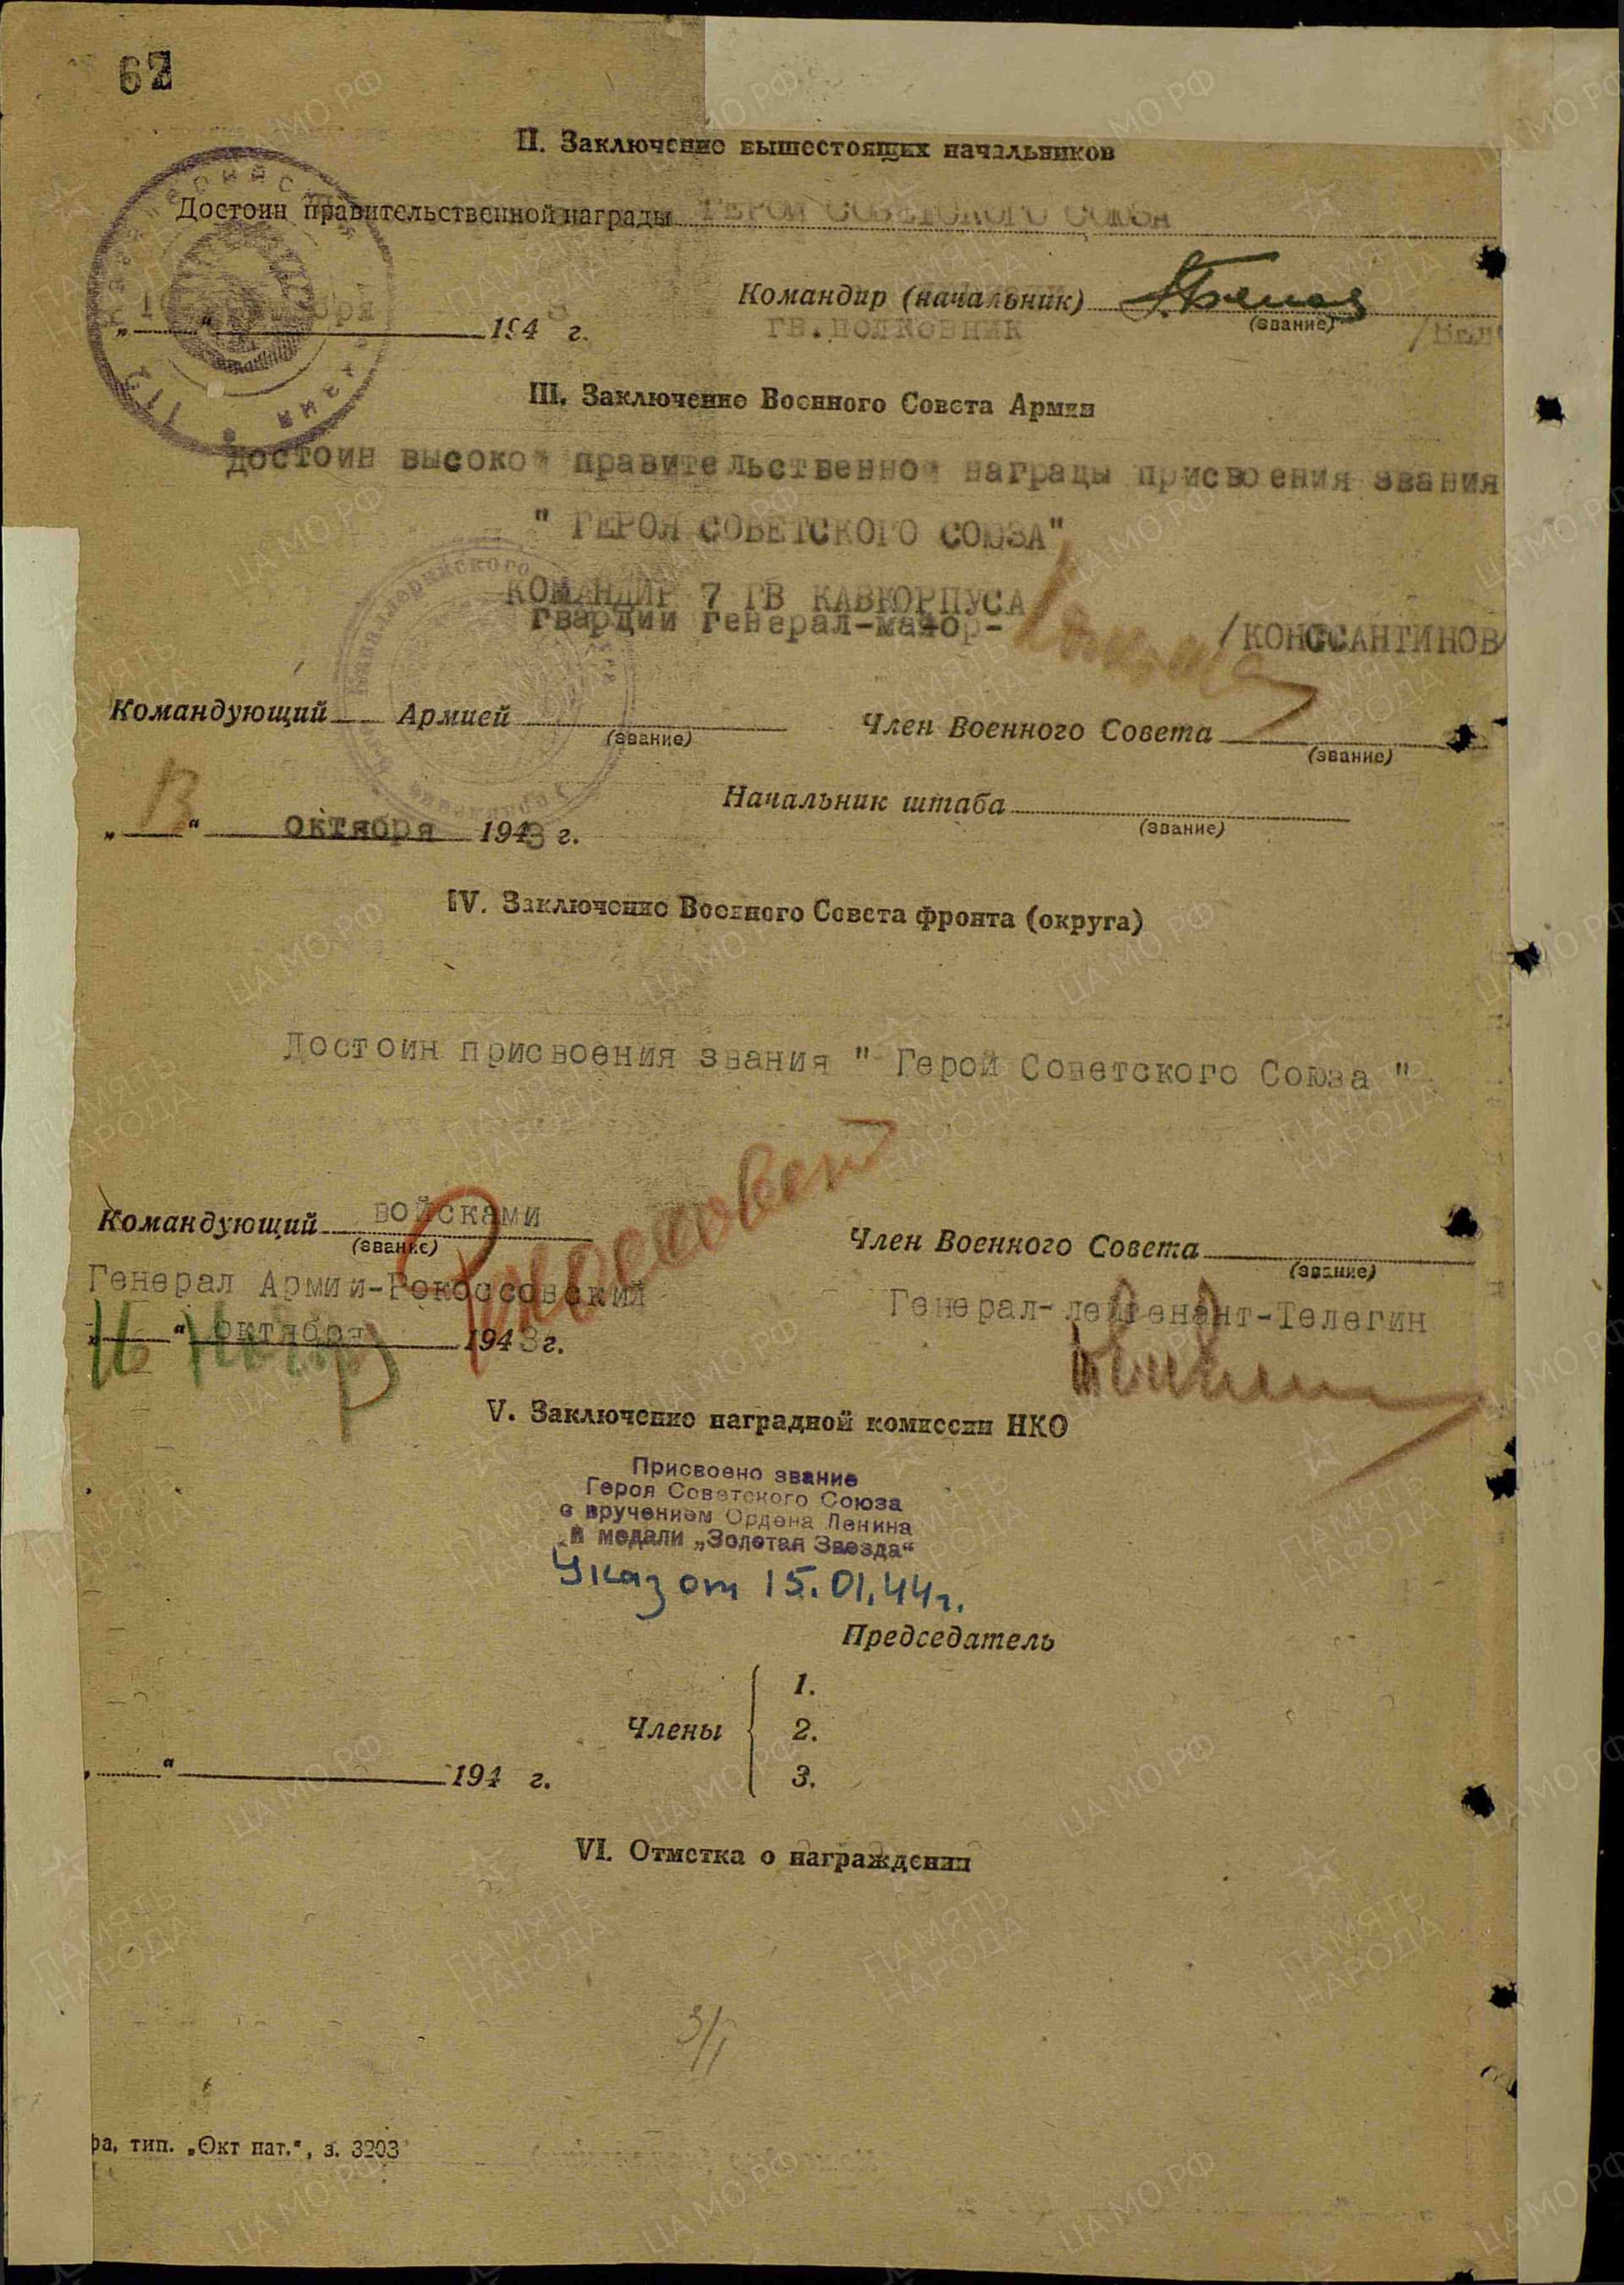 62
II. Заключение вышестоящих начальников
Достоин правительственной награды ГЕРОЙ СОВЕТСКОГО СОЮЗА
Командир (начальник)
(звание)
гв. полковник
„ “ 194 г.
III. Заключение Военного Совета Армии
достоин высокой правительственной награды присвоения звания
" ГЕРОЯ СОВЕТСКОГО СОЮЗА"
КОМАНДИР 7 ГВ КАВКОРПУСА
гвардии генерал-майор- /КОНССАНТИНОВ/
Командующий Армией
(звание)
Член Военного Совета
(звание)
Начальник штаба
(звание)
„13“ октября 1943 г.
IV. Заключение Военного Совета фронта (округа)
Достоин присвоения звания " Герой Советского Союза "
Командующий войсками
(звание)
Генерал Армии-Рокоссовский
Член Военного Совета
(звание)
Генерал-лейтенант-Телегин
16 октября 1943 г.
V. Заключение наградной комиссии НКО
Присвоено звание
Героя Советского Союза
с вручением Ордена Ленина
и медали „Золотая Звезда“
Указ от 15.01.44г.
Председатель
Члены
1.
2.
3.
„ “ 194 г.
VI. Отметка о награждении
3/I
фа, тип. „Окт нат.“, з. 3203
ЦА МО РФ
ПАМЯТЬ НАРОДА